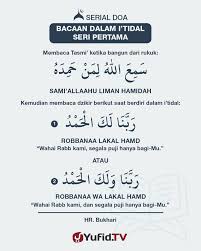 SERIAL DOA
BACAAN DALAM I'TIDAL
SERI PERTAMA
Membaca Tasmi' ketika bangun dari rukuk:
سَمِعَ اللهُ لِمَنْ حَمِدَهُ
SAMI'ALLAAHU LIMAN HAMIDAH
Kemudian membaca dzikir berikut saat berdiri dalam i'tidal:
1 رَبَّنَا لَكَ الْحَمْدُ
ROBBANAA LAKAL HAMD
"Wahai Rabb kami, segala puji hanya bagi-Mu."
ATAU
2 رَبَّنَا وَلَكَ الْحَمْدُ
ROBBANAA WA LAKAL HAMD
"Wahai Rabb kami, dan segala puji hanya bagi-Mu."
HR. Bukhari
Yufid.TV